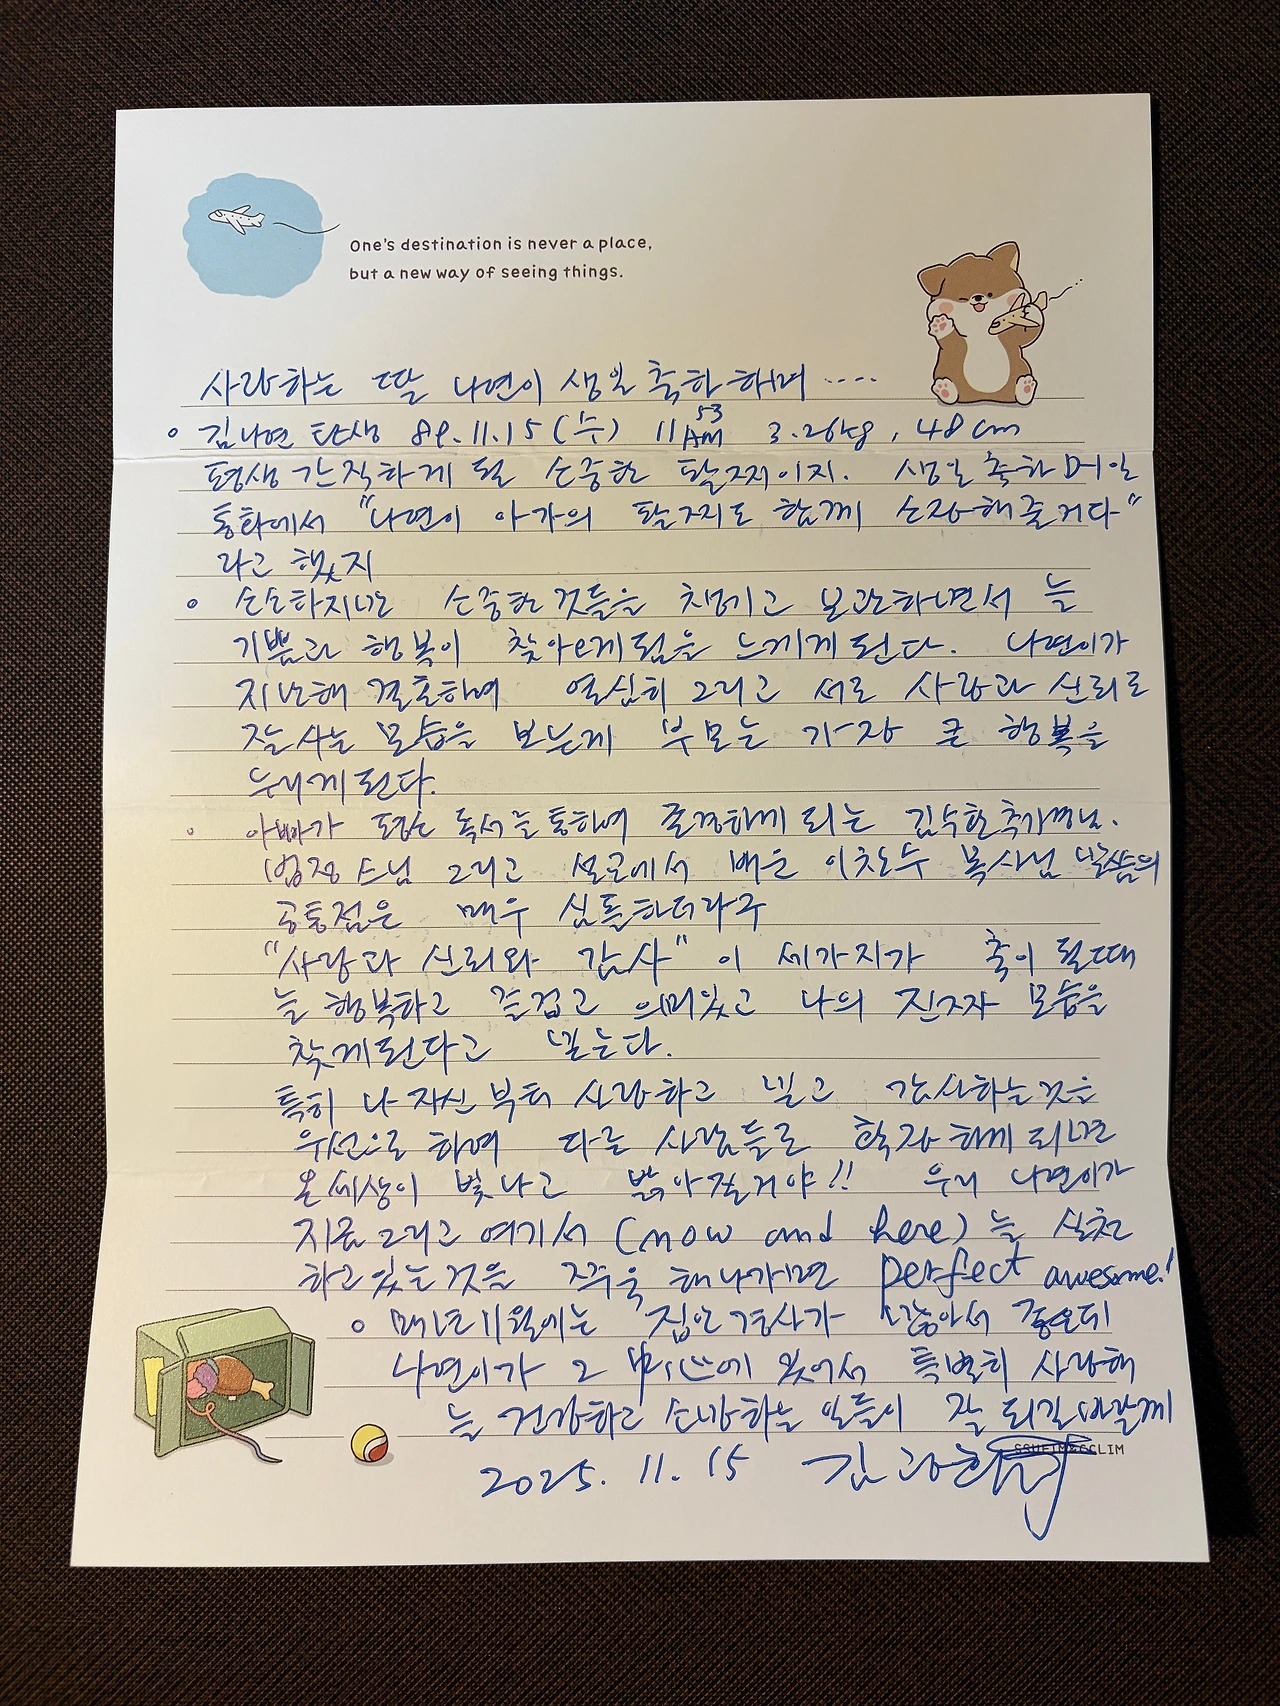 One's destination is never a place,
but a new way of seeing things.
사랑하는 딸 나연이 생일 축하하며 ....
김나연 탄생 89.11.15 (수) 11 53 AM 3.26kg, 48cm
평생 간직하게 될 소중한 팔찌이지. 생일 축하 메일
통화에서 "나연이 아가의 팔찌도 함께 소장해줄거다"
라고 했지
소소하지만 소중한것들을 챙기고 보관하면서 늘
기쁨과 행복이 찾아오게됨을 느끼게 된다. 나연이가
지난해 결혼하여 열심히 그리고 서로 사랑과 신뢰로
잘 사는 모습을 보는게 부모는 가장 큰 행복을
누리게 된다.
아빠가 평소 독서를 통하여 존경하게 되는 김수환 추기경님.
법정 스님 그리고 설교에서 배운 이찬수 목사님 말씀의
공통점은 매우 심플하더라구
"사랑과 신뢰와 감사" 이 세가지가 축이 될때
늘 행복하고 즐겁고 의미있고 나의 진짜 모습을
찾게된다고 믿는다.
특히 나 자신부터 사랑하고 믿고 감사하는것을
우선으로 하여 다른 사람들로 확장하게 되면
온 세상이 빛나고 밝아질거야!! 우리 나연이가
지금 그리고 여기서 (now and here) 늘 실천
하고있는것을 쭈욱 해나가면 perfect awesome!
매년 11월에는 집안 경사가 많아서 좋은데
나연이가 그 中心에 있어서 특별히 사랑해
늘 건강하고 소망하는 일들이 잘 되길 바랄께
2025. 11. 15 김